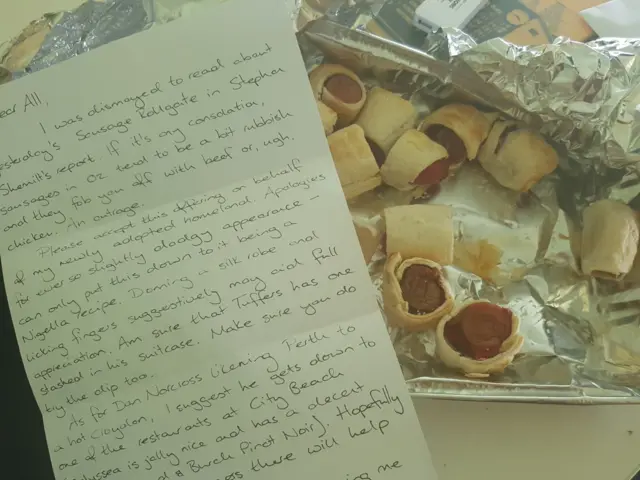 ear All,
I was dismayed to read about
yesterday's Sausage Rollgate in Stephen
Shemilt's report. If it's any consolation,
sausages in Oz tend to be a bit rubbish
and they fob you off with beef or, ugh,
chicken. An outrage.
Please accept this offering on behalf
of my newly adopted homeland. Apologies
for ever so slightly dodgy appearance –
can only put this down to it being a
Nigella recipe. Donning a silk robe and
licking fingers suggestively may aid full
appreciation. Am sure that Tuffers has one
stashed in his suitcase. Make sure you do
try the dip too.
As for Dan Norcross likening Perth to
a hot Croydon, I suggest he gets down to
one of the restaurants at City Beach
dyssea is jolly nice and has a decent
& Burch Pinot Noir). Hopefully
there will help
me